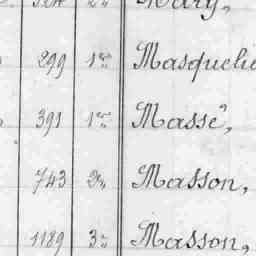 324 2e Mary,
299 1re Masquelie
391 1re Massé,
743 2e Masson,
1189 3e Masson,